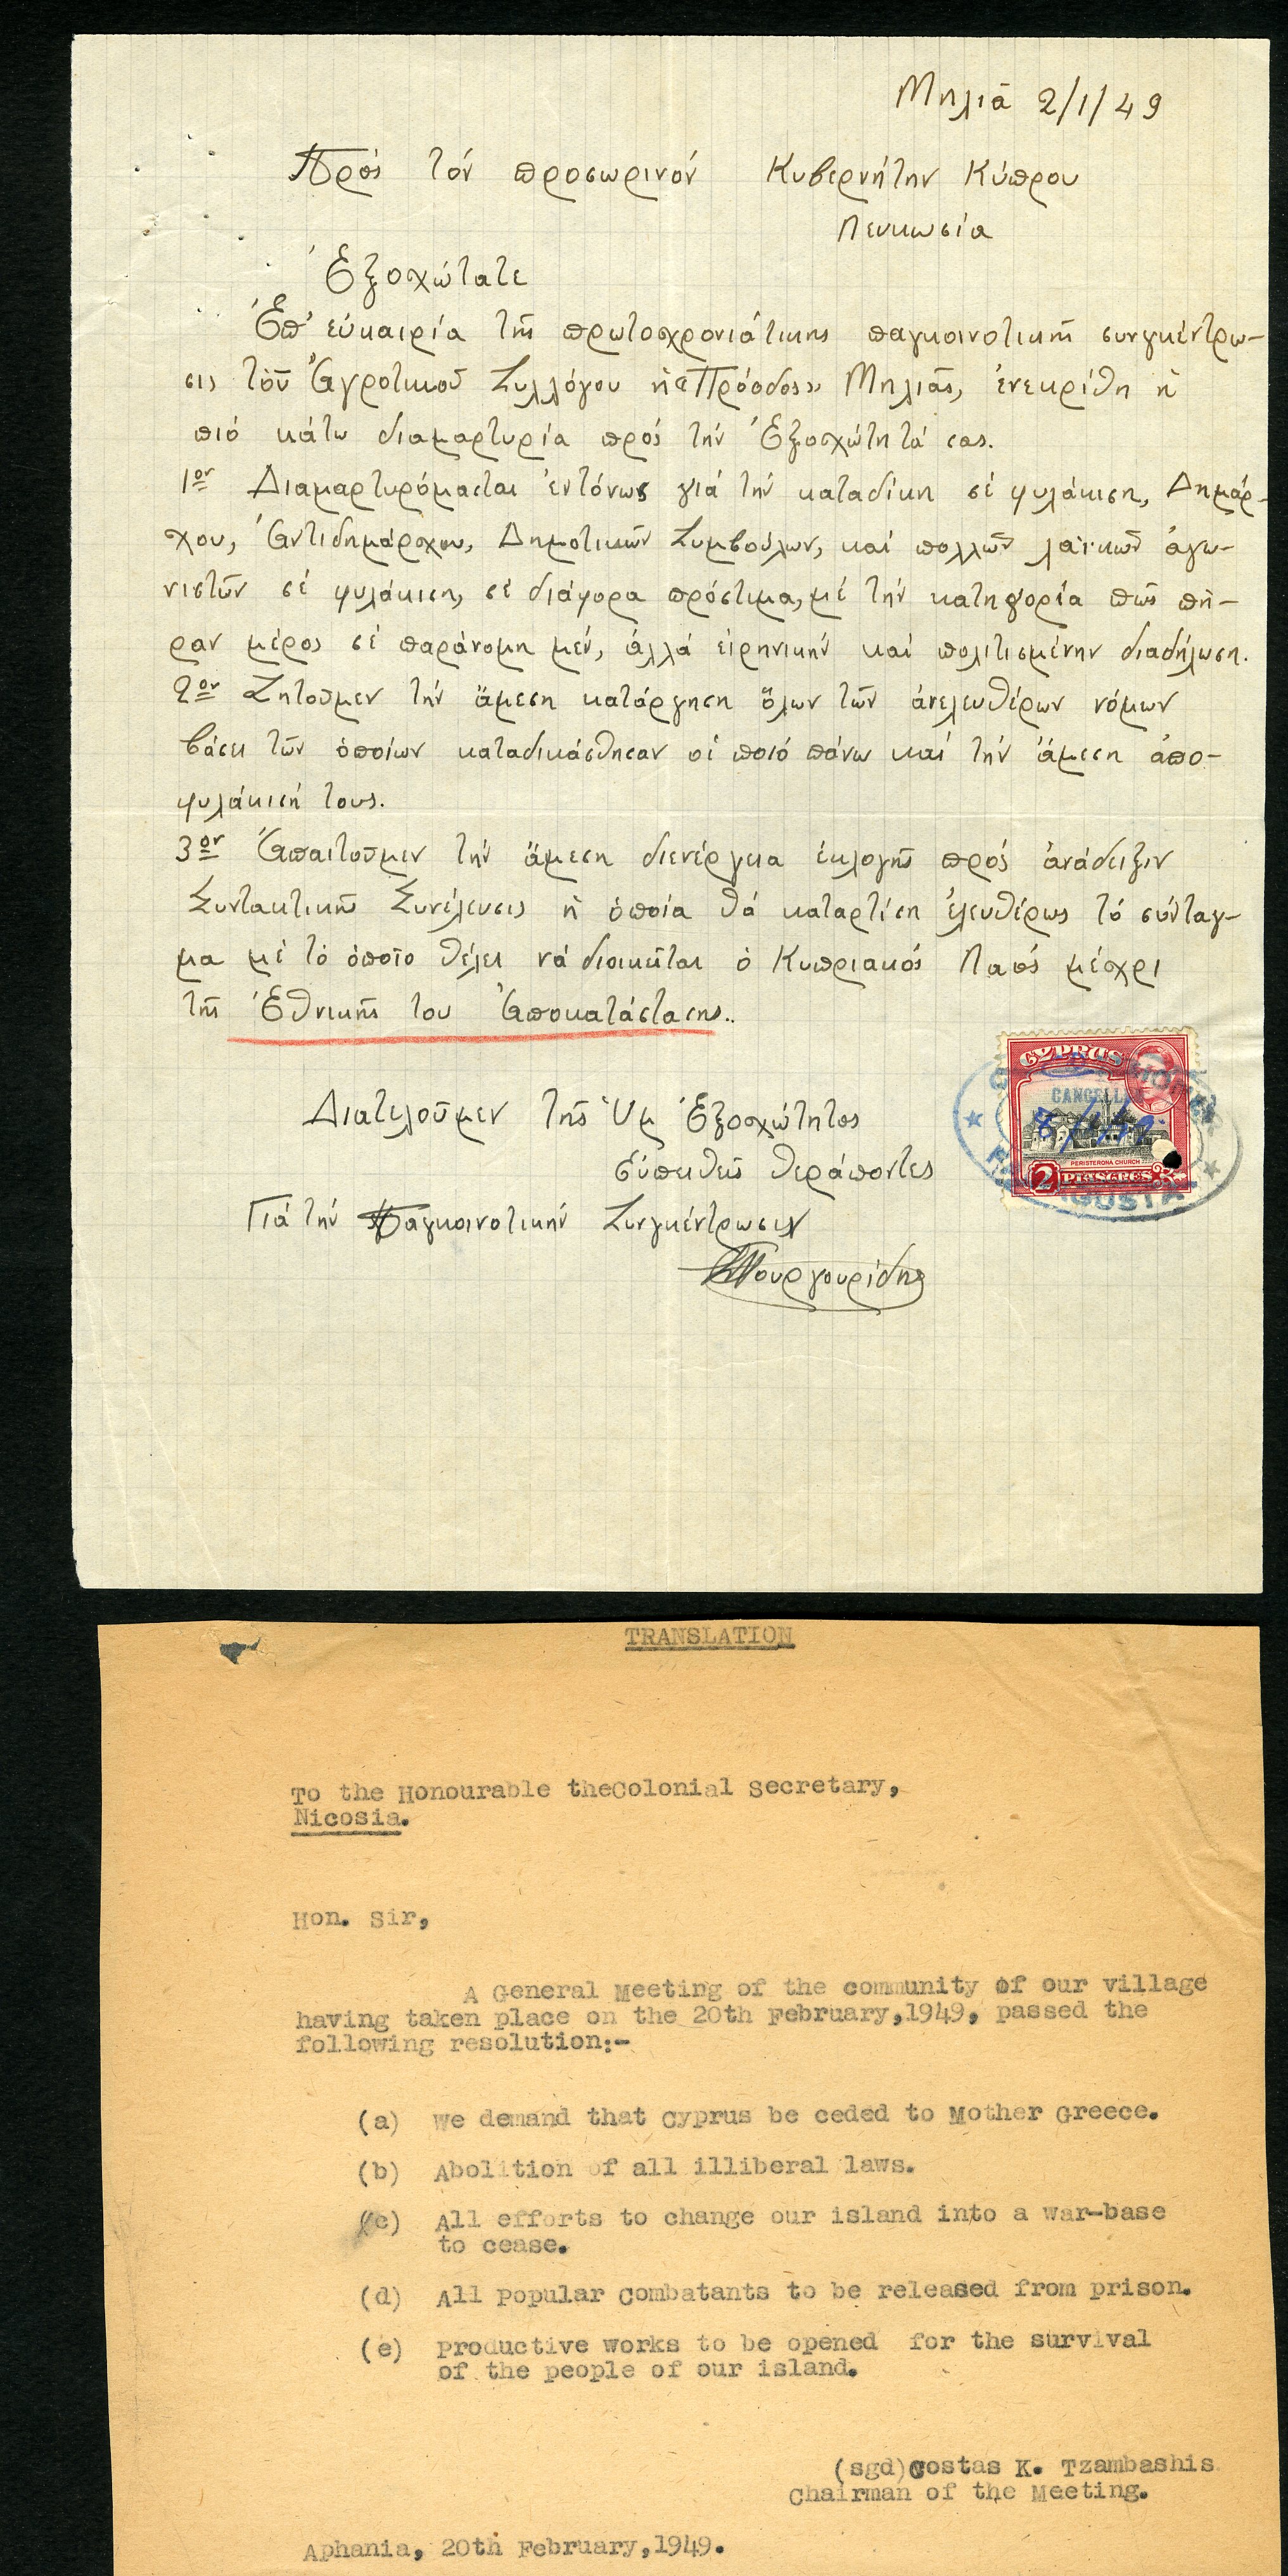 Μηλιά 2/1/49
Πρός τόν προσωρινόν Κυβερνήτην Κύπρου
Λευκωσία
Ἐξοχώτατε
Ἐπ' εὐκαιρία τῆς πρωτοχρονιάτικης παγκοινοτικῆς συνγκέντρω-
σις τοῦ Ἀγροτικοῦ Συλλόγου ἡ «Πρόοδος» Μηλιᾶς, ἐνεκρίθη ἡ
πιό κάτω διαμαρτυρία πρός τήν Ἐξοχώτητά σας.
1ον Διαμαρτυρόμασται ἐντόνως γιά τήν καταδίκη σέ φυλάκιση, Δημάρ-
χου, Ἀντιδημάρχου, Δημοτικῶν Συμβούλων, καί πολλῶν λαϊκῶν ἀγω-
νιστῶν σέ φυλάκιση, σέ διάφορα πρόστιμα, μέ τήν κατηγορία πῶς πῆ-
ραν μέρος σέ παράνομη μέν, ἀλλά εἰρηνικήν καί πολιτισμένην διαδήλωση.
2ον Ζητοῦμεν τήν ἄμεση κατάργηση ὅλων τῶν ἀνελευθέρων νόμων
βάσει τῶν ὁποίων καταδικάσθησαν οἱ ποιό πάνω καί τήν ἄμεση ἀπο-
φυλάκισή τους.
3ον Ἀπαιτοῦμεν τήν ἄμεση διενέργεια ἐκλογῆς πρός ἀνάδειξιν
Συντακτικῆς Συνέλευσις ἡ ὁποία θά καταρτίση ἐλευθέρως τό σύνταγ-
μα μέ τό ὁποῖο θέλει νά διοικῆται ὁ Κυπριακός Λαός μέχρι
τῆς Ἐθνικῆς του Ἀποκατάστασης..
Διατελοῦμεν τῆς Ὑμ Ἐξοχώτητος
εὐπειθεῖς θεράποντες
Γιά τήν Παγκοινοτικήν Συνγκέντρωσιν
Πουργουρίδης
CYPRUS
CANCELLED
PERISTERONA CHURCH
2 PIASTRES
COMMISSIONER
FAMAGUSTA
TRANSLATION
To the Honourable theColonial Secretary,
Nicosia.
Hon. Sir,
A General Meeting of the community of our village
having taken place on the 20th February,1949, passed the
following resolution:-
(a) We demand that Cyprus be ceded to Mother Greece.
(b) Abolition of all illiberal laws.
(c) All efforts to change our island into a war-base
to cease.
(d) All Popular Combatants to be released from prison.
(e) Productive works to be opened for the survival
of the people of our island.
(sgd)Costas K. Tzambashis
Chairman of the Meeting.
Aphania, 20th February,1949.